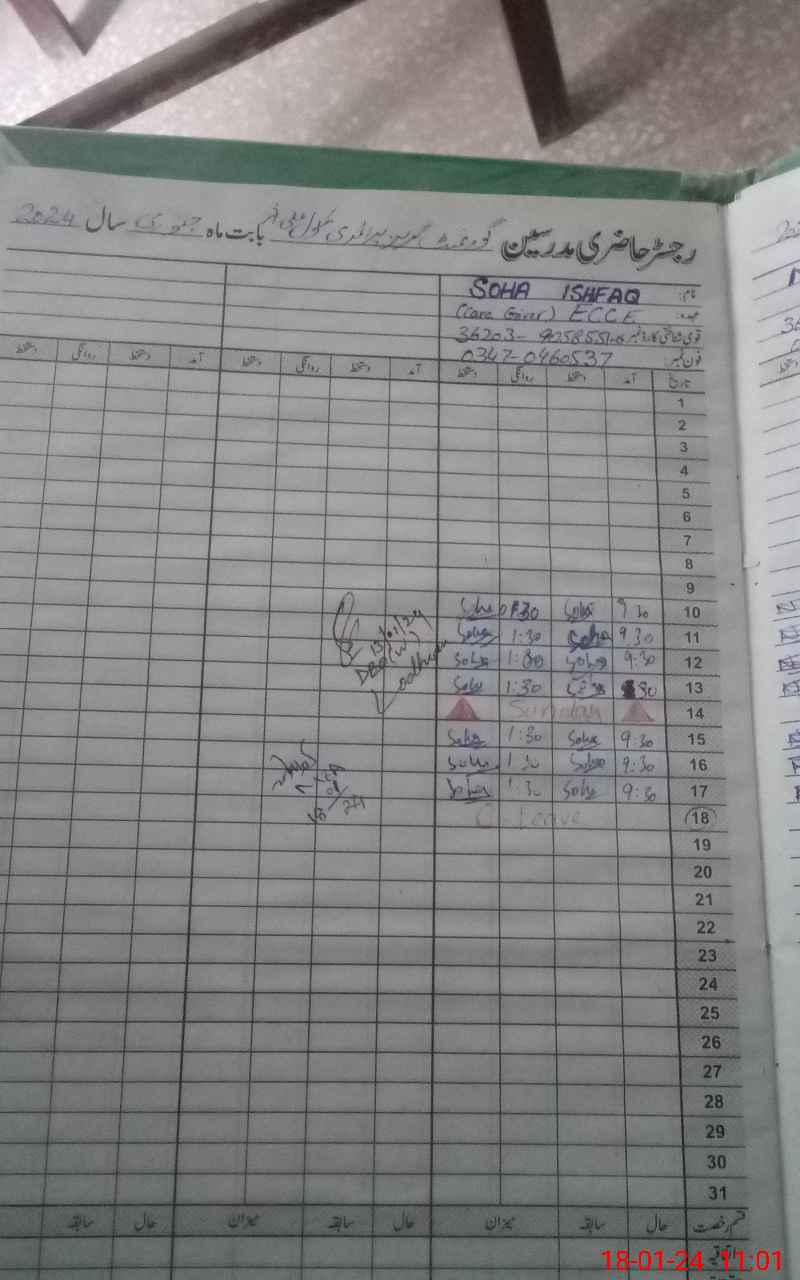 رجسٹر حاضری مدرسین گورنمنٹ گرلز سکول بابت ماہ جنوری سال 2024
نام: SOHA ISHFAQ
عہدہ: (Care Giver) ECCE
قومی شناختی کارڈ نمبر 36203-
فون نمبر: 0347-0460537
تاریخ آمد دستخط روانگی دستخط آمد دستخط روانگی دستخط آمد دستخط روانگی دستخط
1
2
3
4
5
6
7
8
9
10 9:30 Soha 1:30 Soha
11 9:30 Soha 1:30 Soha
12 9:30 Soha 1:30 Soha
13 30 Soha 1:30 Soha
14 Sunday
15 9:30 Soha 1:30 Soha
16 9:30 Soha 1:30 Soha
17 9:30 Soha 1:30 Soha
18 C. Leave
19
20
21
22
23
24
25
26
27
28
29
30
31
13/01/24
Lodhran
قسم رخصت حال سابقہ میزان حال سابقہ میزان حال سابقہ
اتفاقیہ
18-01-24 11:01